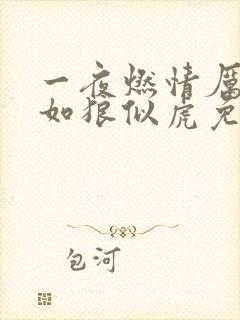 一夜燃情厉
如狼似虎免
包河